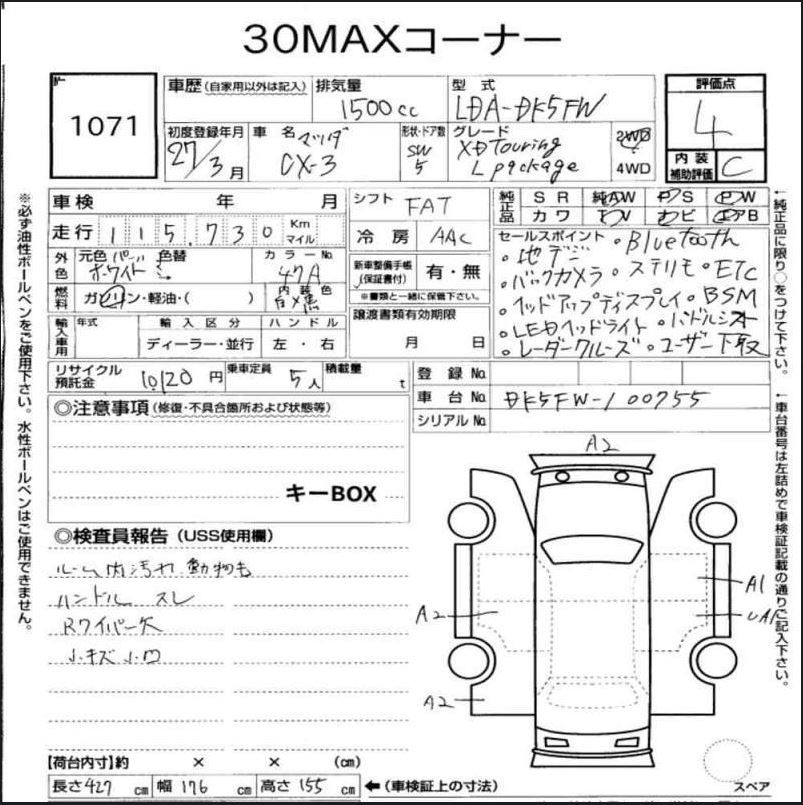 30MAXコーナー
1071
車歴（自家用以外は記入） 排気量 1500cc 型式 LDA-DK5FW
評価点 4
初度登録年月 27/3月 車名 マツダ CX-3 形状・ドア数 SW 5 グレード XD Touring L package 2WD 4WD
内装補助評価 C
車検 年 月 シフト FAT
純正品 SR 純AW PS PW
カワ TV ナビ エアB
走行 115,730 Km マイル 冷房 AAC
外色 元色 パール ホワイト 色替 カラーNo. 47A
新車整備手帳（保証書付） 有・無
※書類と一緒に保管下さい。
燃料 ガソリン・軽油・（ ） 内装色
譲渡書類有効期限 月 日
輸入車用 年式 輸入区分 ハンドル
ディーラー・並行 左・右
セールスポイント ・Bluetooth
・地デジ
・バックカメラ ・ステリモ ・ETC
・ヘッドアップディスプレイ ・BSM
・LEDヘッドライト ・パドルシフト
・レーダークルーズ ・ユーザー下取
リサイクル預託金 10,120円 乗車定員 5人 積載量 t
登録No.
車台No. DK5FW-100755
シリアルNo.
◎注意事項（修復・不具合箇所および状態等）
キーBOX
◎検査員報告（USS使用欄）
ルーム内汚れ 動物毛
ハンドル スレ
Rワイパー欠
小キズ 小凹
A2
A1
A2
UA1
A2
スペア
【荷台内寸】約 × × （cm）
長さ427cm 幅176cm 高さ155cm ←（車検証上の寸法）
※必ず油性ボールペンをご使用下さい。水性ボールペンはご使用できません。
←純正品に限り○をつけて下さい。
←車台番号は左詰めで車検証記載の通りご記入下さい。